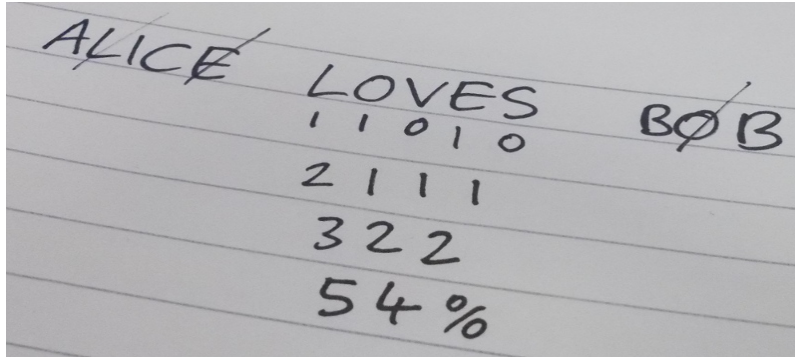 ALICE LOVES BOB
1 1 0 1 0
2 1 1 1
3 2 2
5 4 %